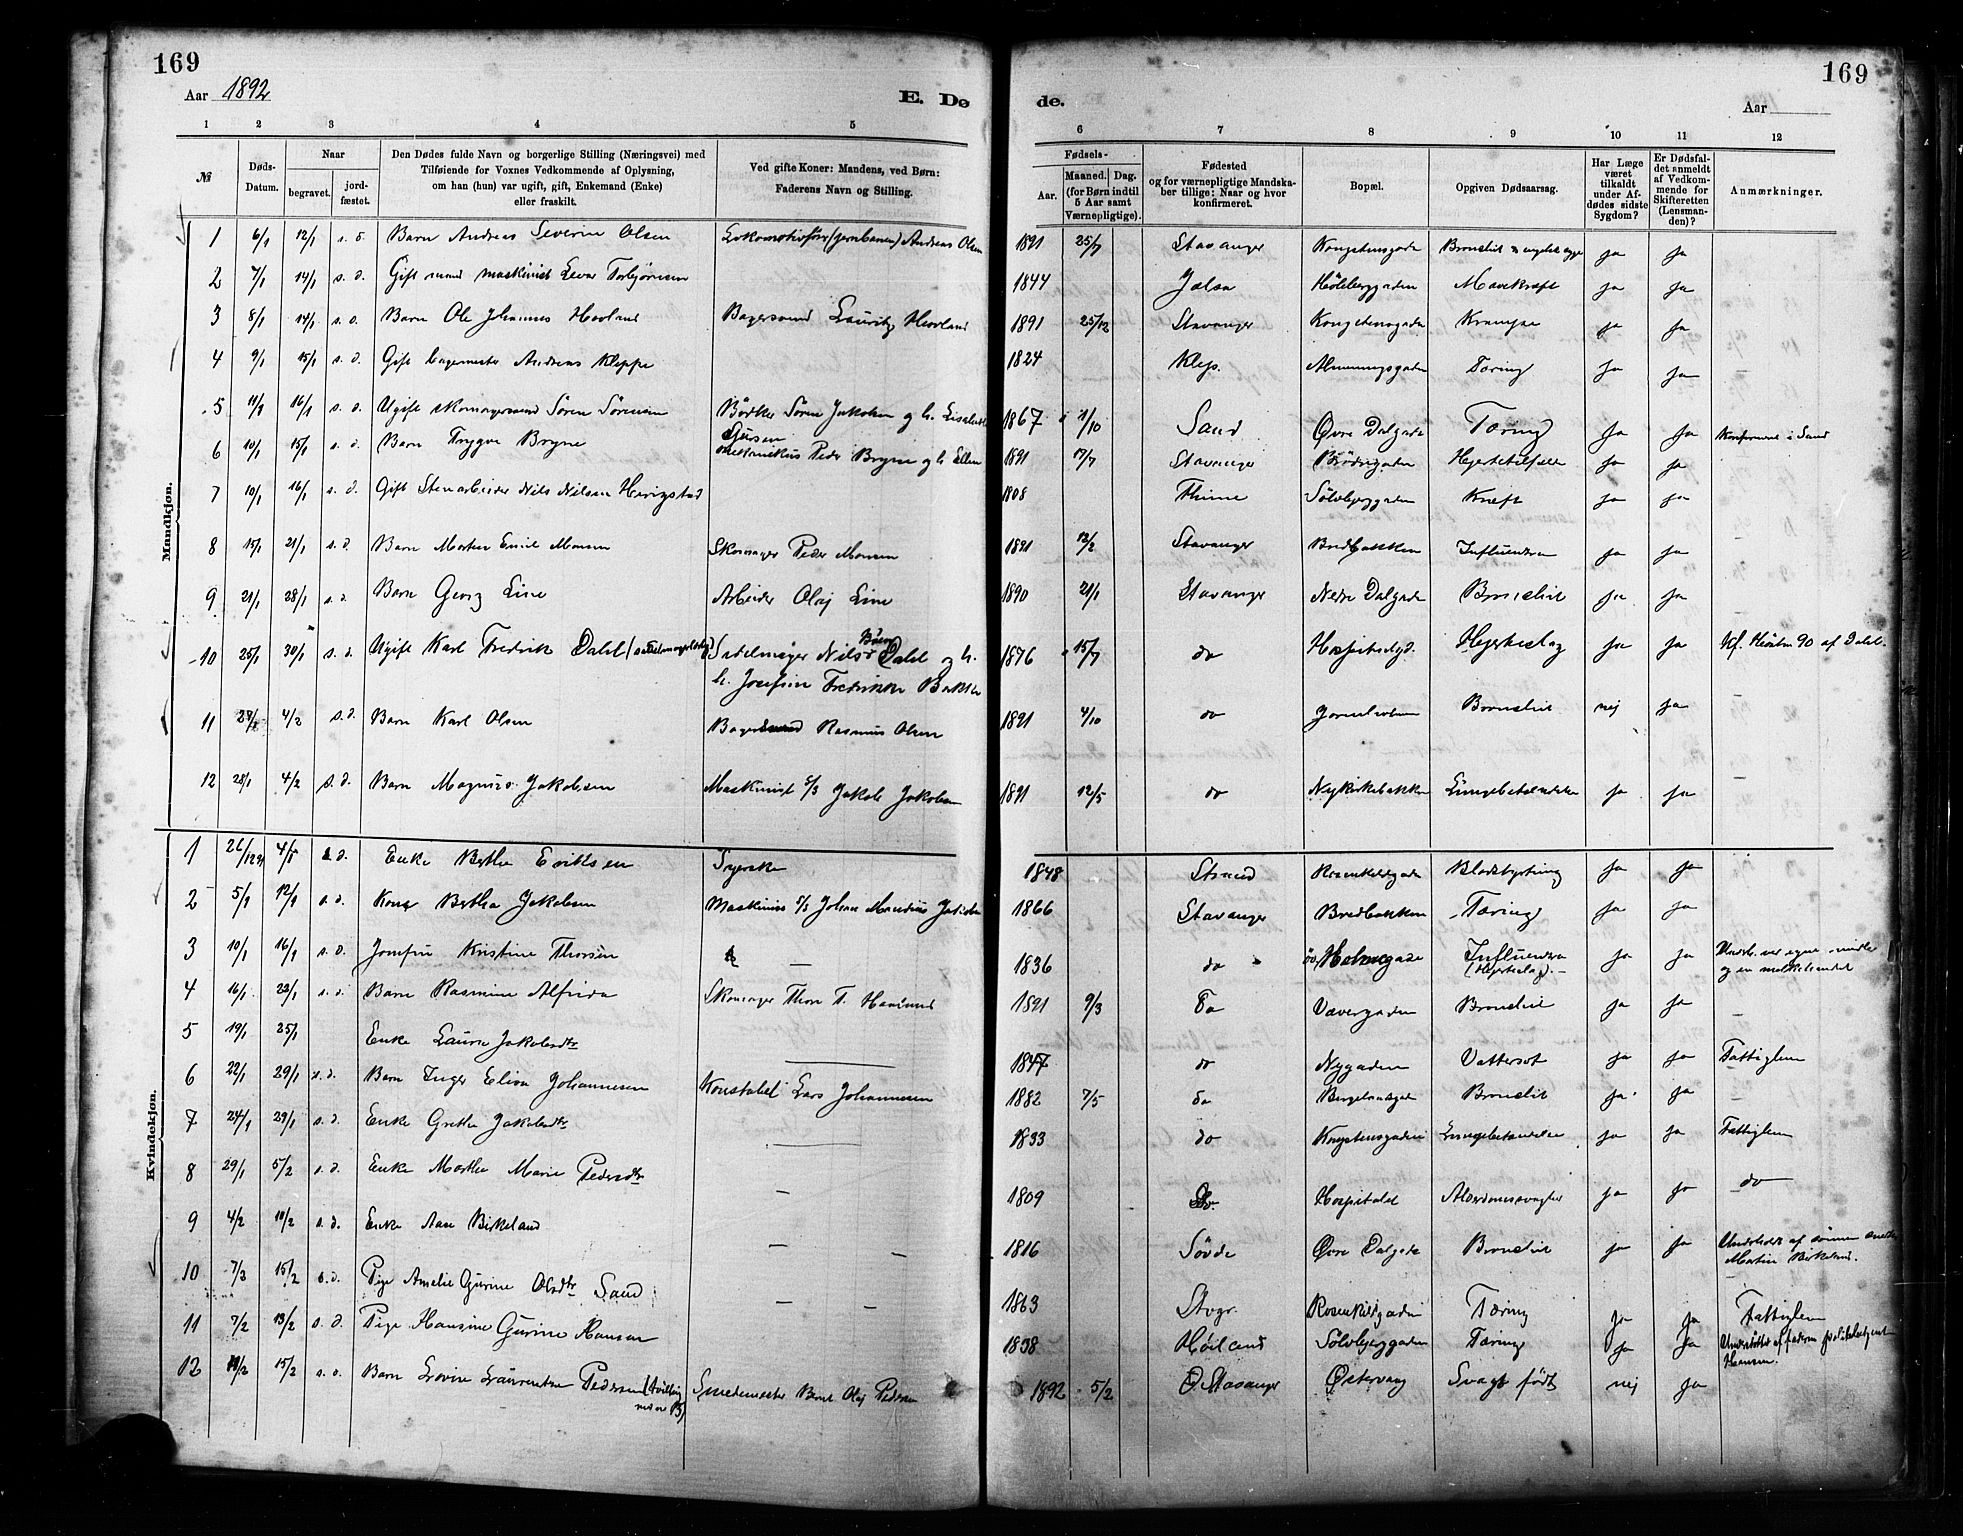 169
Aar 1892
E. Dø
1 2 3 4 5
№
Døds-
Datum.
Naar
begravet.
jord-
fæstet.
Den Dødes fulde Navn og borgerlige Stilling (Næringsvei) med
Tilføiende for Voxnes Vedkommende af Oplysning,
om han (hun) var ugift, gift, Enkemand (Enke)
eller fraskilt.
Ved gifte Koner: Mandens, ved Børn:
Faderens Navn og Stilling.
Mandkjøn.
1 6/1 12/1 s. d. Barn Andreas Severin Olsen Lokomotivfører (jernbanen) Andreas Olsen
2 7/1 14/1 s. d. Gift mand maskinist Torbjørnsen
3 8/1 14/1 s. d. Barn Ole Johannes Hovland Bagersvend Lauritz Hovland
4 9/1 15/1 s. d. Gift bagermester Andreas Kleppe
5 11/1 16/1 s. d. Ugift skomagersvend Søren Sørensen Bødker Søren Jakobsen og h.
6 10/1 15/1 s. d. Barn Trygve Bryne mekanikus Peder Bryne og h. Ellen
7 10/1 16/1 s. d. Gift Stenarbeider Nils Nilsen Herigstad
8 15/1 21/1 s. d. Barn Morten Emil Monsen Skomager Peder Monsen
9 21/1 28/1 s. d. Barn Georg Line Arbeider Olaj Line
10 25/1 30/1 s. d. Ugift Karl Fredrik Dahl Sadelmager Nils Dahl og h.
h. Josefine Fredrikke
11 4/2 s. d. Barn Karl Olsen Bager Rasmus Olsen
12 28/1 4/2 s. d. Barn Magnus Jakobsen Maskinist d/s Jakob Jakobsen
Kvindekjøn.
1 26/12 91 4/1 s. d. Enke Bertha Eriksen Syerske
2 5/1 12/1 s. d. Kone Bertha Jakobsen Maskinist d/s Johan Jakobsen
3 10/1 16/1 s. d. Josefine Kristine Thorsen —
4 16/1 22/1 s. d. Barn Rasmine Alfrida Skomager Thore T.
5 19/1 25/1 Enke Laura Jakobsdtr —
6 22/1 29/1 s. d. Barn Inger Elisa Johannesen Konstabel Lars Johannesen
7 24/1 29/1 s. d. Enke Grethe Jakobsdtr —
8 29/1 5/2 s. d. Enke Marthe Marie Pedersdtr —
9 4/2 10/2 s. d. Enke Ane Birkeland — —
10 7/2 15/2 s. d. Pige Amalie Gurine Olsdtr Sand — —
11 7/2 13/2 s. d. Pige Hansine Gurine Hansen
12 11/2 15/2 s. d. Barn Lovise Laurentse Pedersen (tvilling Smedemester Bernt Olaj Pedersen
169
Aar
de.
6 7 8 9 10 11 12
Fødsels-
Aar.
Maaned. Dag.
(for Børn indtil
5 Aar samt
Værnepligtige).
Fødested
og for værnepligtige Mandska-
ber tillige: Naar og hvor
konfirmeret.
Bopæl.
Opgiven Dødsaarsag.
Har Læge
været
tilkaldt
under Af-
dødes sidste
Sygdom?
Er Dødsfal-
det anmeldt
af Vedkom-
mende for
Skifteretten
(Lensman-
den)?
Anmærkninger.
1891 25/7 Stavanger Kongstensgade Bronchit ja ja
1844 Jelsa Høleberggaden Mavekræft ja ja
1891 25/12 Stavanger Kongstensgade Krampe ja ja
1824 Klep. Almenningsgaden Tæring ja ja
1867 1/10 Sand Øvre Dalgade Tæring ja ja Konfirmeret i Sand
1891 17/7 Stavanger Brødregaden ja ja
1808 Thime Sølvberggaden Kræft ja ja
1891 12/2 Stavanger Bredbakken Influendsa ja ja
1890 21/1 Stavanger Nedre Dalgade Bronchit ja ja
1876 15/7 do Hospitalsgd. Hjerteslag ja ja Kf. Høsten 90 af Dahl.
1891 4/10 do Bronchit nej ja
1891 12/5 do Nykirkebakken Lungebetændelse ja ja
1848 Strand Rosenkildegade Blodstyrtning ja ja
1866 Stavanger Bredbakken Tæring ja ja
1836 do Influendsa ja ja
(Hjerteslag).
1891 9/3 Do Vævergaden Bronchit ja ja
1847 do Nygaden Vattersot ja ja Fattiglem
1882 7/5 Do Bergelandsgade Bronchit ja ja
1833 do Kongstensgaden Lungebetændelse ja ja Fattiglem
1809 Do. Hospitalet Alderdomssvaghed ja ja do
1816 Søvde Øvre Dalgade Bronchit ja ja Underholdt af sønnen
Martin Birkeland.
1863 Stvgr. Rosenkildgaden Tæring ja ja Fattiglem
1838 Høiland Sølvberggaden Tæring ja ja
Hansen.
1892 5/2 Stavanger Østervaag Svagt født nej ja